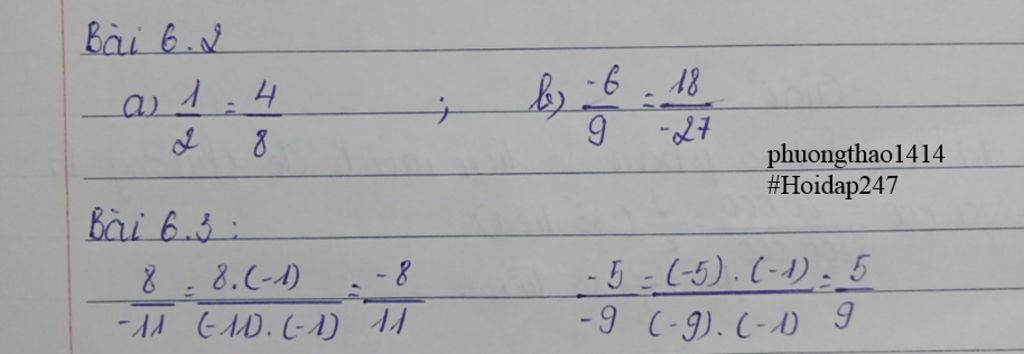 Bài 6.2
a) 1/2 = 4/8 ; b) -6/9 = 18/-27
phuongthao1414
#Hoidap247
Bài 6.3 :
8/-11 = 8.(-1)/(-11).(-1) = -8/11 -5/-9 = (-5).(-1)/(-9).(-1) = 5/9